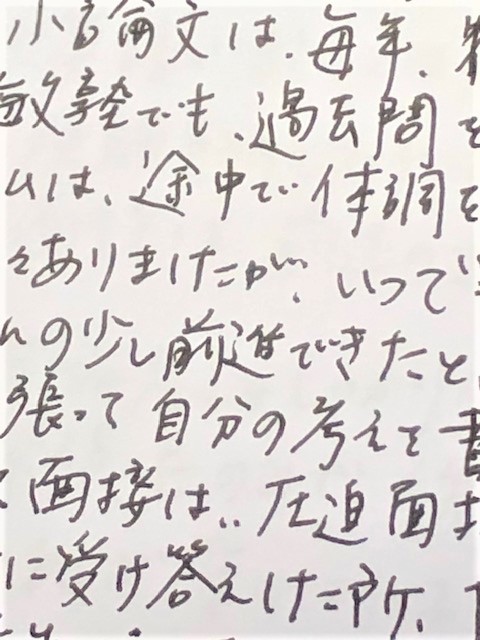 小論文は、毎年、
敏塾でも、過去問を
ムは、途中で体調を
々ありましたが、いってい
んの少し前進できたと
張って自分の考えを書
面接は、圧迫面接
に受け答えした所、